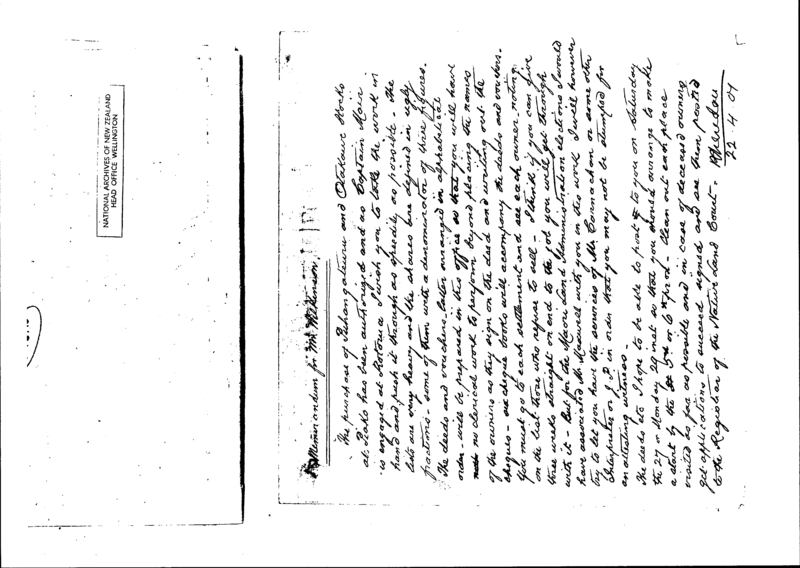 NATIONAL ARCHIVES OF NEW ZEALAND
HEAD OFFICE WELLINGTON
Memorandum for Mr Wilkinson
The purchase of and Blocks
at has been authorized and as Captain Mair
is engaged at Rotorua I wish you to take the work in
hand and push it through as speedily as possible - The
lists are very heavy and the shares are defined in ugly
fractions - some of them with a denominator of three figures.
The deeds and vouchers, latter arranged in alphabetical
order - will be prepared in this office so that you will have
no clerical work to perform beyond placing the names
of the owners as they sign on the deed and writing out the
cheques - as cheque books will accompany the deeds and vouchers.
You must go to each settlement and see each owner, noting
on the list those who refuse to sell - I think if you can give
three weeks straight on end to the job you will get through
with it - But for the Maori Land Administration elections I would
have associated Mr Maxwell with you in this work I will however
try to let you have the services of Mr or some other
Interpreter or J.P. in order that you may not be stumped for
an attesting witness -
The deeds etc I hope to be able to post to you on Saturday
the 27 or Monday 29 inst so that you should arrange to make
a start by the 5th or 6th prox - Clean out each place
visited as far as possible and in case of deceased owners
get applications to succeed signed and see them posted
to the Registrar of the Native Land Court -
Sheridan
22.4.07